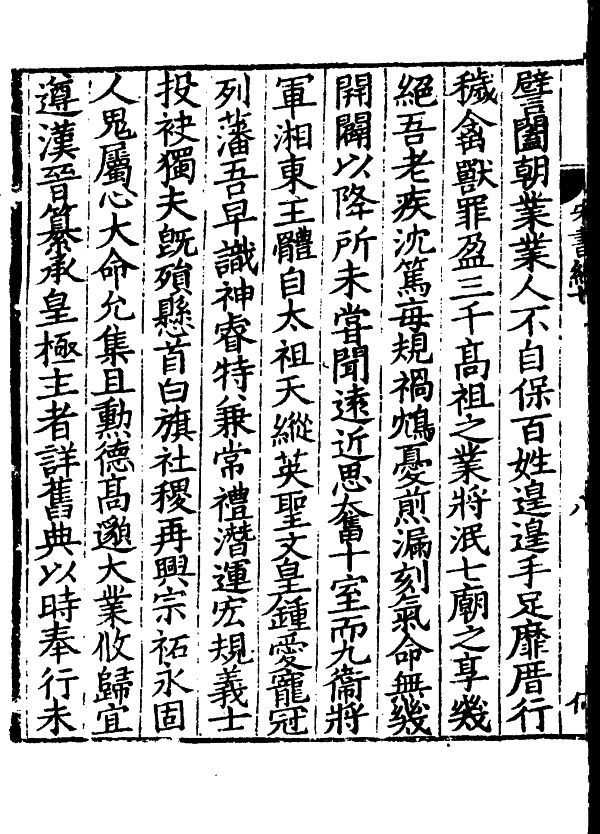 譬闔朝業業人不自保百姓遑遑手足靡厝行
穢禽獸罪盈三千髙祖之業將泯七廟之享幾
絕吾老疾沈篤每規禍鴆憂煎漏刻氣命無幾
開闢以降所未嘗聞遠近思奮十室而九衞將
軍湘東王體自太祖天縱英聖文皇鍾愛寵冠
列藩吾早識神睿特兼常禮潛運宏規義士
投袂獨夫旣殞懸首白旗社稷再興宗祏永固
人鬼屬心大命允集且勳德髙邈大業攸歸宜
遵漢晉纂承皇極主者詳舊典以時奉行未